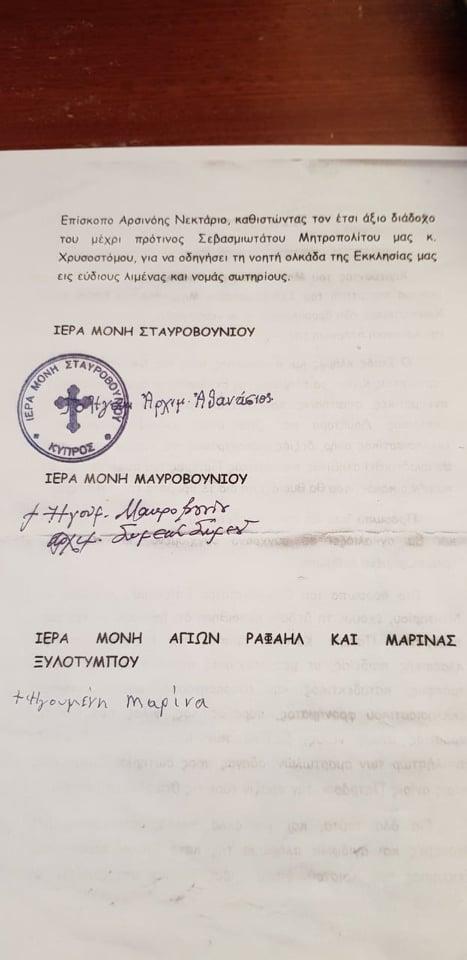 Επίσκοπο Αρσινόης Νεκτάριο, καθιστώντας τον έτσι άξιο διάδοχο
του μέχρι πρότινος Σεβασμιωτάτου Μητροπολίτου μας κ.
Χρυσοστόμου, για να οδηγήσει τη νοητή ολκάδα της Εκκλησίας μας
εις εύδιους λιμένας και νομάς σωτηρίους.
ΙΕΡΑ ΜΟΝΗ ΣΤΑΥΡΟΒΟΥΝΙΟΥ
ΙΕΡΑ ΜΟΝΗ ΣΤΑΥΡΟΒΟΥΝΙΟΥ
ΚΥΠΡΟΣ
Ἀρχιμ. Ἀθανάσιος
ΙΕΡΑ ΜΟΝΗ ΜΑΥΡΟΒΟΥΝΙΟΥ
+ Ηγούμ. Μαυροβουνίου
αρχιμ.
ΙΕΡΑ ΜΟΝΗ ΑΓΙΩΝ ΡΑΦΑΗΛ ΚΑΙ ΜΑΡΙΝΑΣ
ΞΥΛΟΤΥΜΠΟΥ
+ Ηγουμένη Μαρίνα